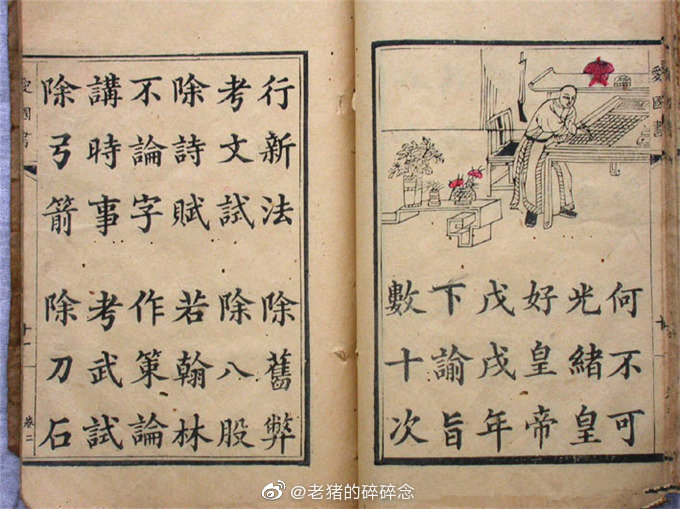 何不可
光緒皇
好皇帝
戊戌年
下諭旨
數十次
行新法 除舊弊
考文試 除八股
除詩賦 若翰林
不論字 作策論
講時事 考武試
除弓箭 除刀石
十一
卷二
@老猪的碎碎念